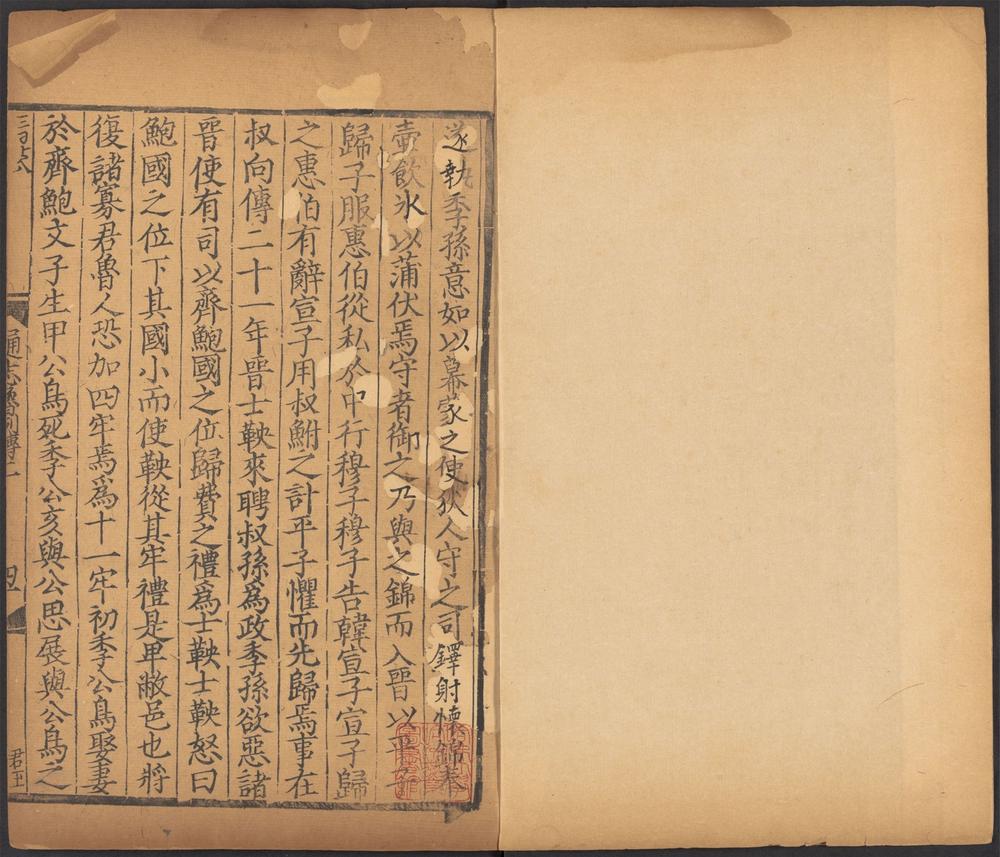 遂執季孫意如以幕蒙之使狄人守之司鐸射懷錦奉
壷飲氷以蒲伏焉守者御之乃與之錦而入晉以平子
歸子服惠伯從私於中行穆子穆子告韓宣子宣子歸
之惠伯有辭宣子用叔鮒之計平子懼而先歸焉事在
叔向傳二十一年晉士鞅來聘叔孫爲政季孫欲惡諸
晉使有司以齊鮑國之位歸費之禮爲士鞅士鞅怒曰
鮑國之位下其國小而使鞅從其牢禮是卑敝邑也將
復諸寡君魯人恐加四牢焉爲十一牢初季公鳥娶妻
於齊鮑文子生甲公鳥死季公亥與公思展與公鳥之
通志
四
君玉